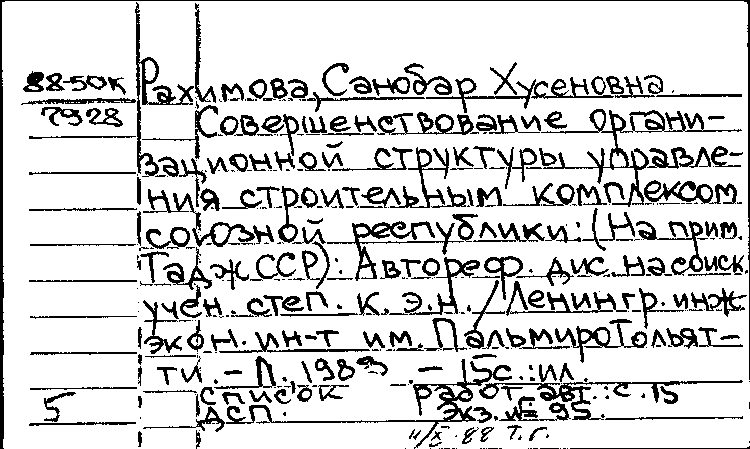 88-50К Рахимова, Санобар Хусеновна.
7928 Совершенствование органи-
зационной структуры управле-
ния строительным комплексом
союзной республики: (На прим.
ТаджССР): Автореф. дис. на соиск.
учен. степ. к. э. н. / Ленингр. инж.-
экон. ин-т им. Пальмиро Тольят-
ти. - Л., - 15с.:ил.
список работ авт.: с. 15
5 ДСП. Экз. № 95.
88 т.г.